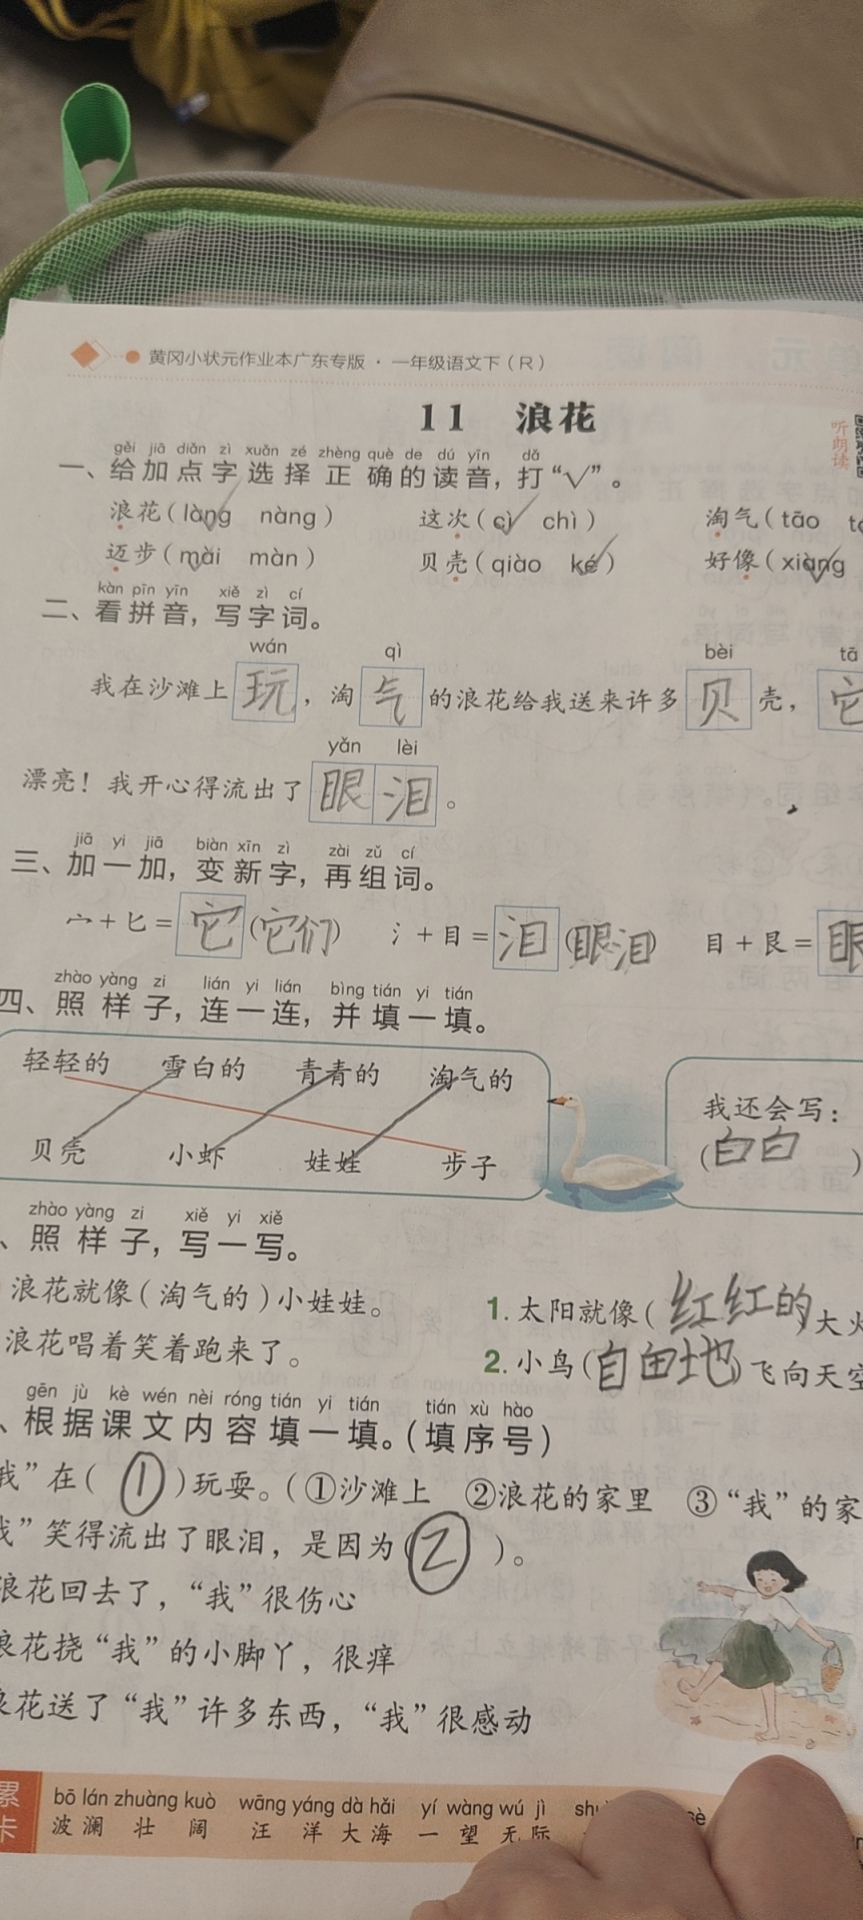 黄冈小状元作业本广东专版 · 一年级语文下（R）
11 浪花
听朗读
gěi jiā diǎn zì xuǎn zé zhèng què de dú yīn dǎ
一、给加点字选择正确的读音，打“√”。
浪花（làng nàng） 这次（cì chì） 淘气（tāo
迈步（mài màn） 贝壳（qiào ké） 好像（xiàng
kàn pīn yīn xiě zì cí
二、看拼音，写字词。
wán qì bèi tā
我在沙滩上玩，淘气的浪花给我送来许多贝壳，它
yǎn lèi
漂亮！我开心得流出了眼泪。
jiā yi jiā biàn xīn zì zài zǔ cí
三、加一加，变新字，再组词。
宀＋匕＝它（它们） 氵＋目＝泪（眼泪） 目＋艮＝眼
zhào yàng zi lián yi lián bìng tián yi tián
四、照样子，连一连，并填一填。
轻轻的 雪白的 青青的 淘气的
贝壳 小虾 娃娃 步子
我还会写：
（白白 ）
zhào yàng zi xiě yi xiě
、照样子，写一写。
浪花就像（淘气的）小娃娃。
浪花唱着笑着跑来了。
1. 太阳就像（红红的）大火
2. 小鸟（自由地）飞向天空
gēn jù kè wén nèi róng tián yi tián tián xù hào
、根据课文内容填一填。（填序号）
我”在（①）玩耍。（①沙滩上 ②浪花的家里 ③“我”的家
我”笑得流出了眼泪，是因为（②）。
浪花回去了，“我”很伤心
浪花挠“我”的小脚丫，很痒
浪花送了“我”许多东西，“我”很感动
累
卡
bō lán zhuàng kuò wāng yáng dà hǎi yí wàng wú jì
波澜壮阔 汪洋大海 一望无际